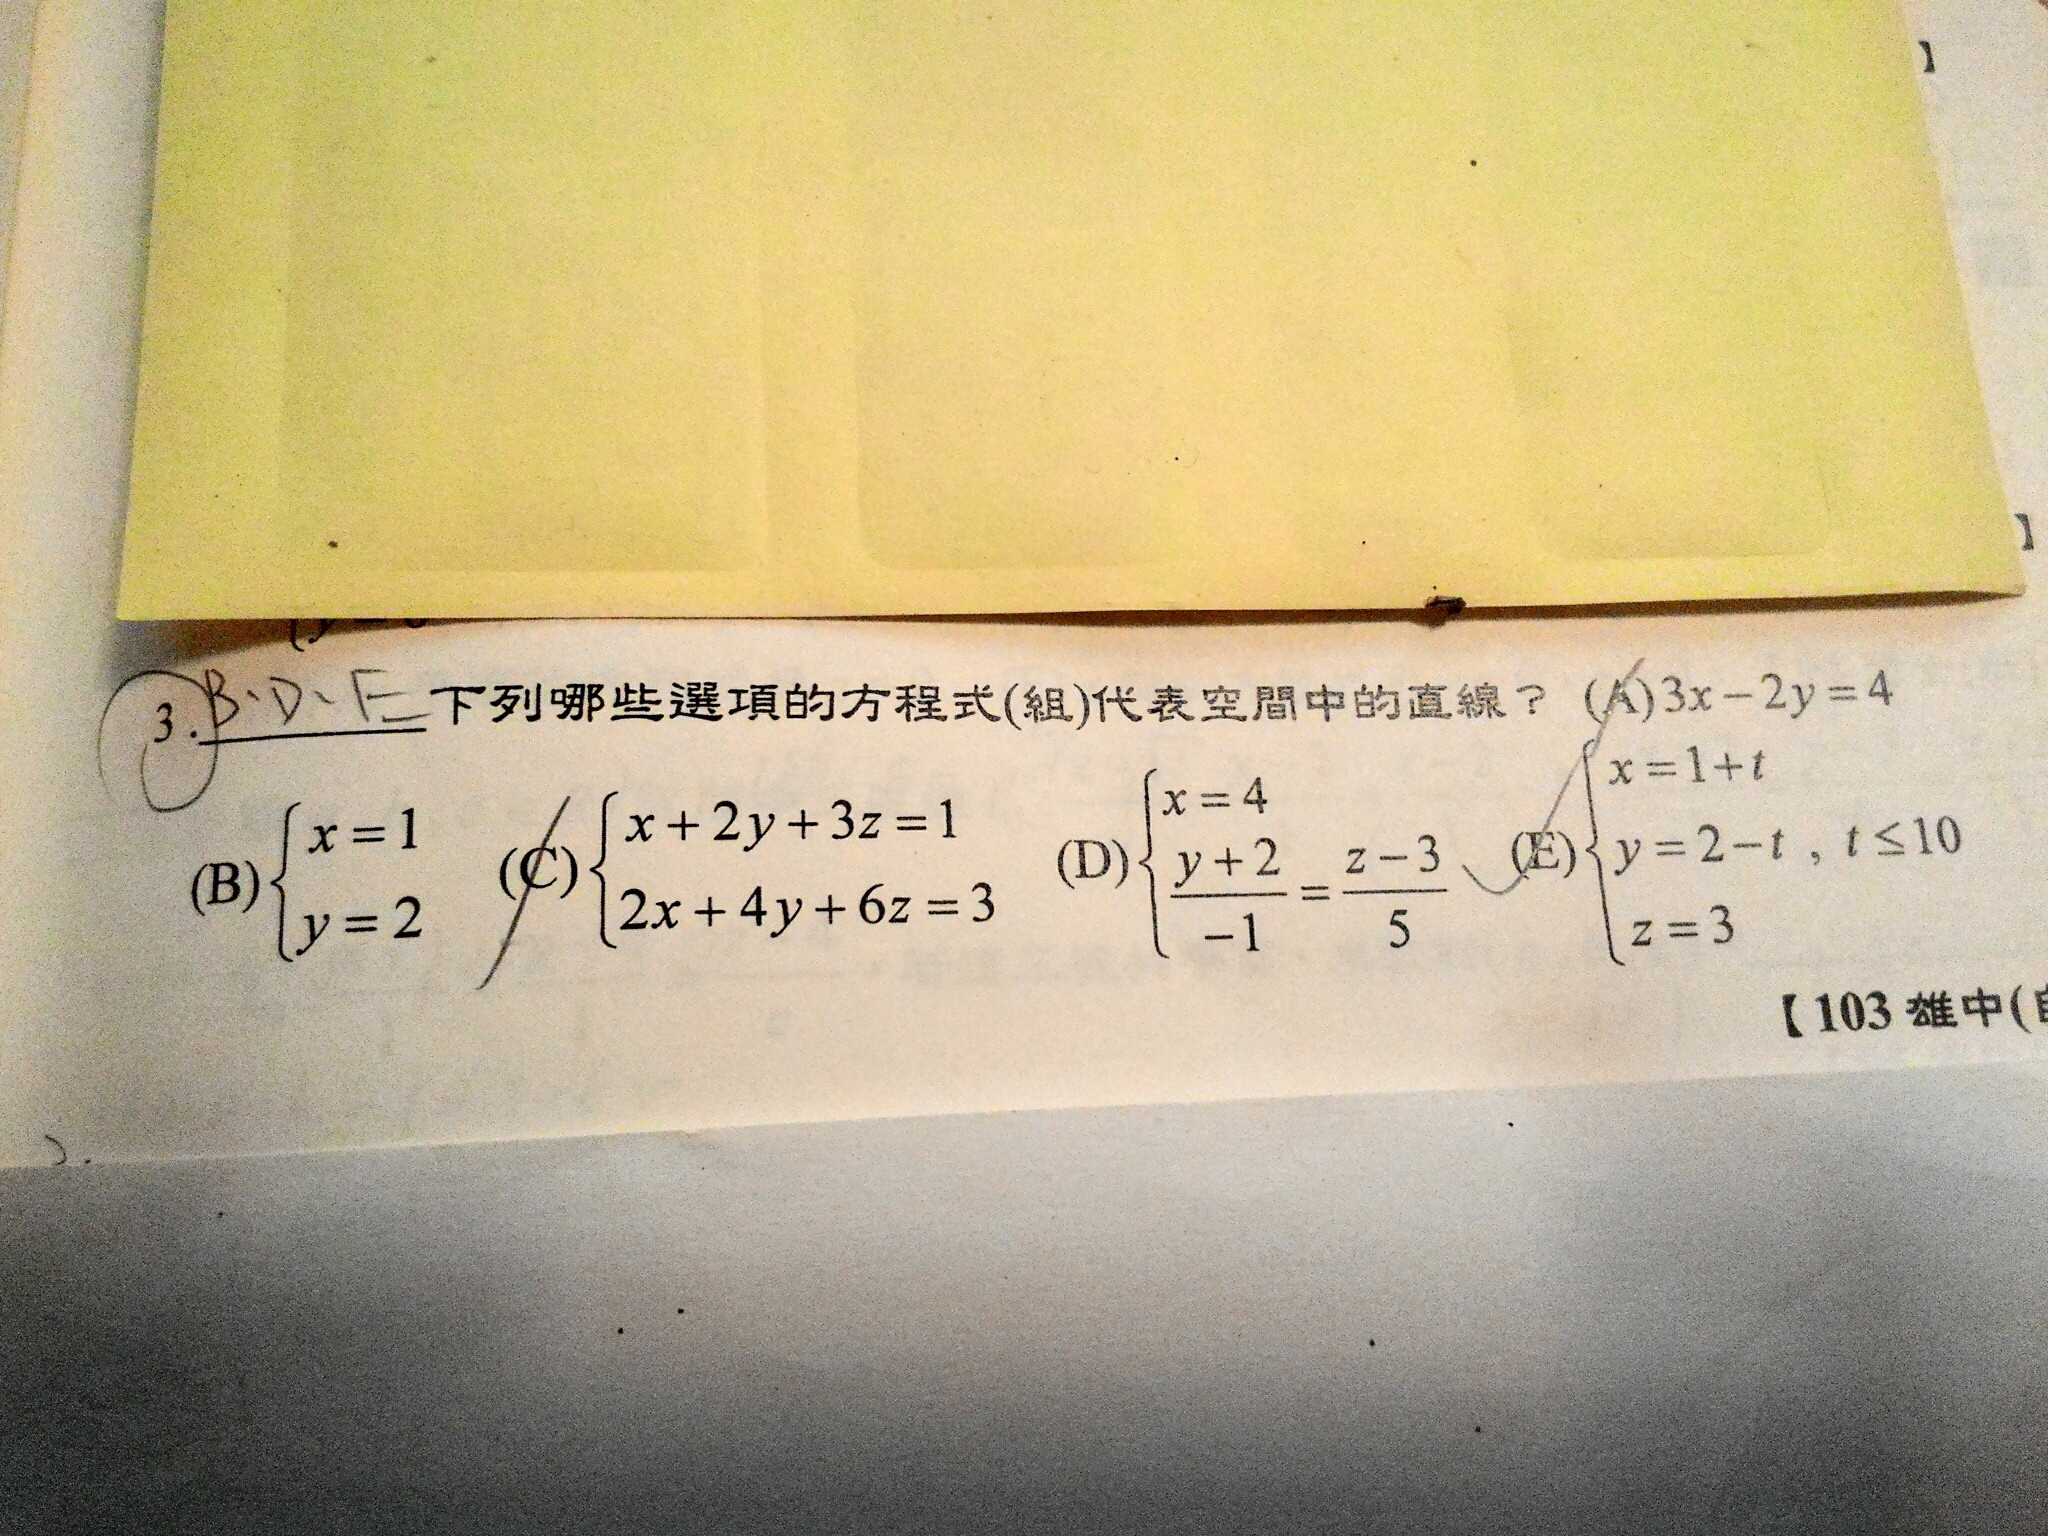 】
】
3. B、D、E 下列哪些選項的方程式(組)代表空間中的直線？ (A) 3x－2y＝4
(B) { x＝1 y＝2 (C) { x＋2y＋3z＝1 2x＋4y＋6z＝3 (D) { x＝4 (y＋2)/－1＝(z－3)/5 (E) { x＝1＋t y＝2－t z＝3 , t≤10
【103 雄中(